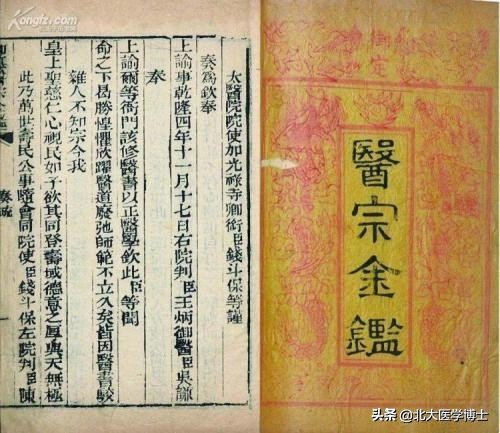 御定
醫宗金鑑
太醫院院使加光祿寺卿銜臣錢斗保等謹
奏為欽奉
上諭事乾隆四年十一月十七日右院判臣王炳御醫臣吳謙
奉
上諭爾等衙門該修醫書以正醫學欽此臣等聞
命之下曷勝惶懼欣躍醫道廢弛師範不立久矣皆因醫書駁
雜人不知宗今我
皇上聖慈仁心視民如子欲其同登壽域德意之厚與天無極
此乃萬世壽民公事隨會同院使臣錢斗保左院判臣陳
奏疏
头条 @北大医学博士